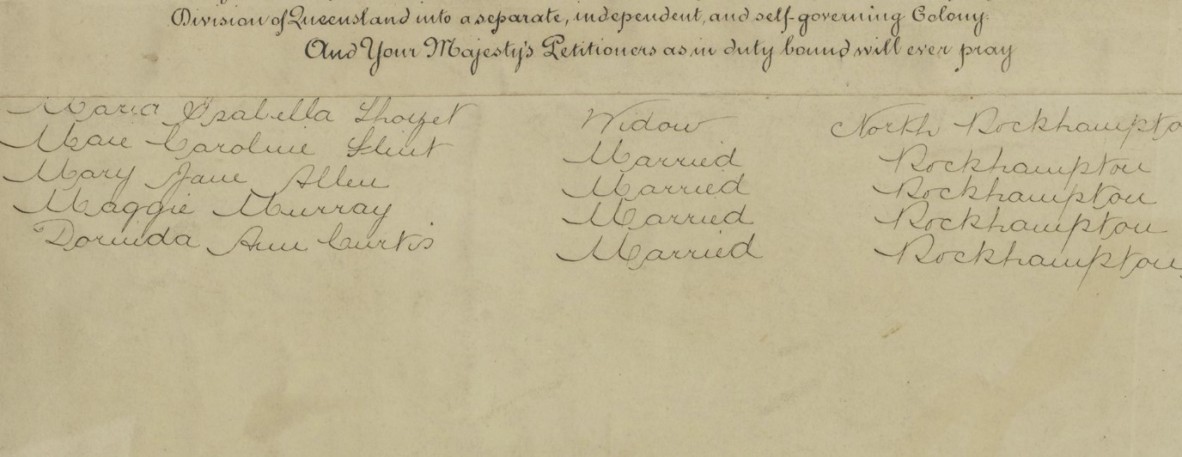 Division of Queensland into a separate, independent, and self-governing Colony.
And Your Majesty's Petitioners as in duty bound will ever pray
Maria Isabella Thozet Widow North Rockhampto
Caroline Married Rockhampton
Mary Jane Allen Married Rockhampton
Maggie Murray Married Rockhampton
Dorinda Ann Curtis Married Rockhampton